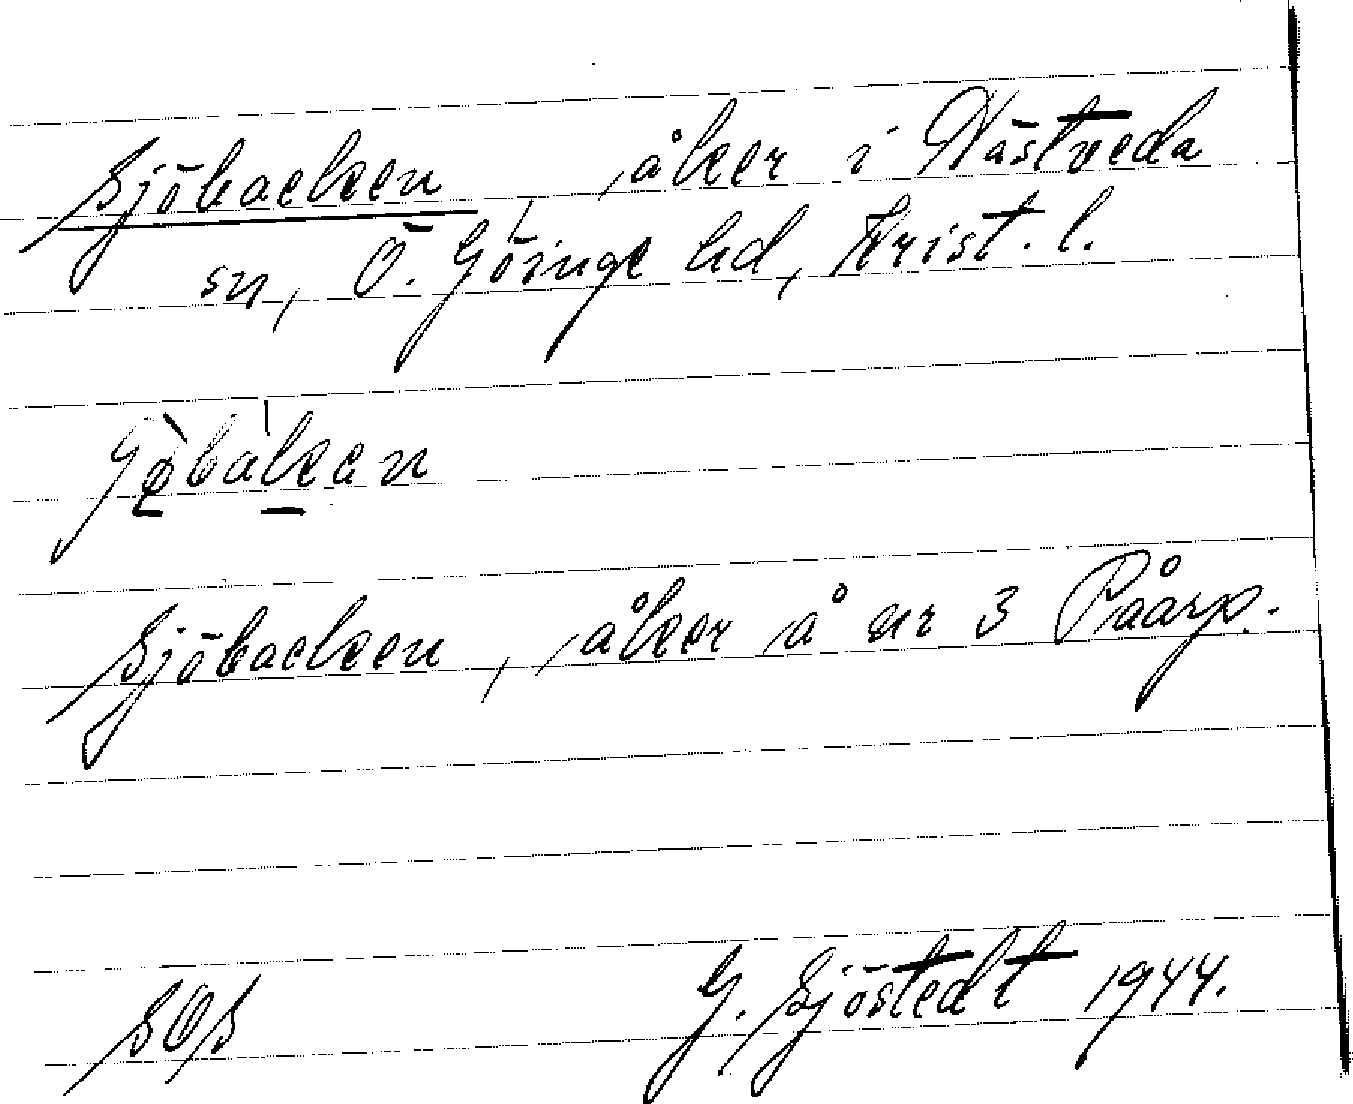 Sjöbacken, åker i Nästveda
sn, Ö. Göinge hd, Krist. l.
Sjöbacken, åker å nr 3 Påarp.
SOS G. Sjöstedt 1944.